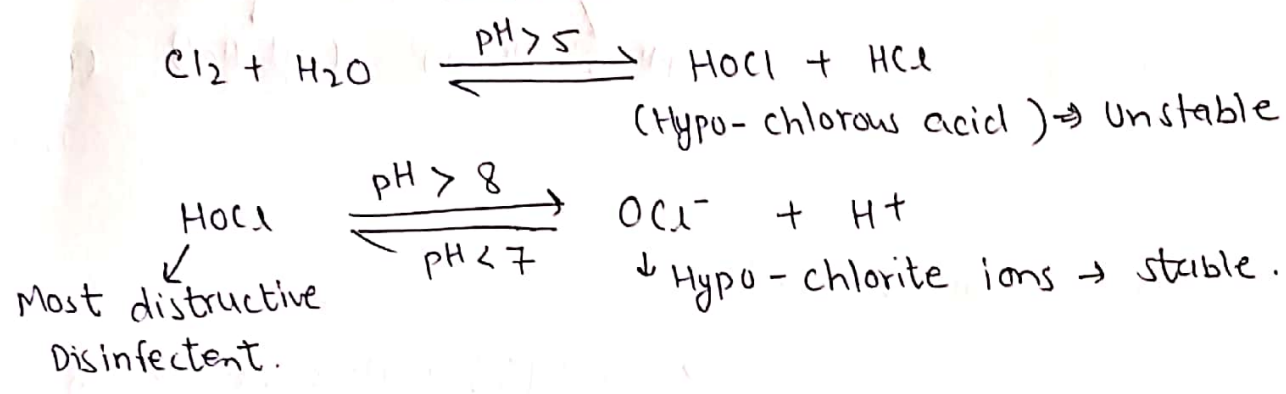 Cl2 + H2O ⇌ pH > 5 HOCl + HCl
(Hypo- chlorous acid ) → Unstable
HOCl ⇌ pH > 8 pH < 7 OCl- + H+
↓ Hypo - chlorite ions → stable.
Most distructive
Disinfectent.